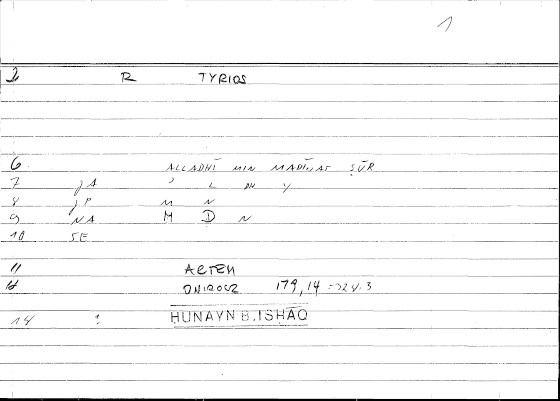 1
2 R TYRIOS
6 ALLADHĪ MIN MADĪNAT ṢŪR
7 JA ʾ L DH Y
8 JP M N
9 NA M D N
10 SE
11 ARTEM
12 ONIROCR 179,14
14 HUNAYN B. ISHĀQ